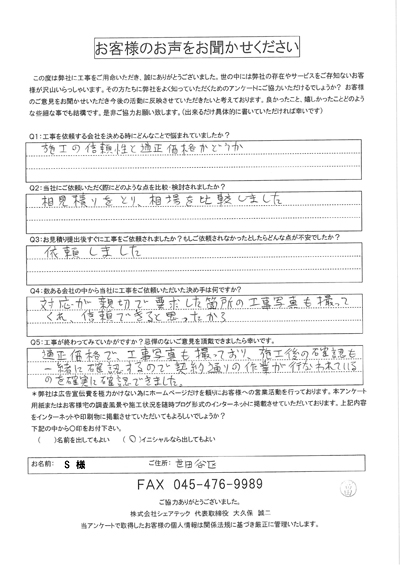 お客様のお声をお聞かせください
この度は弊社に工事をご用命いただき、誠にありがとうございました。世の中には弊社の存在やサービスをご存知ないお客
様が沢山いらっしゃいます。その方たちに弊社をよく知っていただくためのアンケートにご協力いただけるでしょうか？ お客様
のご意見をお聞かせいただき今後の活動に反映させていただきたいと考えております。良かったこと、嬉しかったことどのよう
な些細な事でも結構です。是非ご協力お願い致します。（出来るだけ具体的に書いていただければ幸いです）
Q1：工事を依頼する会社を決める時にどんなことで悩まれていましたか？
施工の信頼性と適正価格かどうか
Q2：当社にご依頼いただく際にどのような点を比較・検討されましたか？
相見積りをとり、相場を比較しました
Q3：お見積り提出後すぐに工事をご依頼されましたか？もしご依頼されなかったとしたらどんな点が不安でしたか？
依頼しました
Q4：数ある会社の中から当社に工事をご依頼いただいた決め手は何ですか？
対応が親切で要求した箇所の工事写真も撮って
くれ、信頼できると思ったから
Q5：工事が終わってみていかがですか？忌憚のないご意見を頂戴できましたら幸いです。
適正価格で、工事写真も撮っており、施工後の確認も
一緒に確認するので契約通りの作業が行なわれている
のを確実に確認できました。
＊弊社は広告宣伝費を極力かけない為にホームページだけを頼りにお客様への営業活動を行っております。本アンケート
用紙またはお客様宅の調査風景や施工状況を随時ブログ形式のインターネットに掲載させていただいております。上記内容
をインターネットや印刷物に掲載させていただいてもよろしいでしょうか？
下記の中から〇印をお付下さい。
（ ）名前を出してもよい （〇）イニシャルなら出してもよい
お名前： S 様 ご住所： 世田谷区
FAX 045-476-9989
ご協力ありがとうございました。
株式会社シェアテック 代表取締役 大久保 誠二
当アンケートで取得したお客様の個人情報は関係法規に基づき厳正に管理いたします。